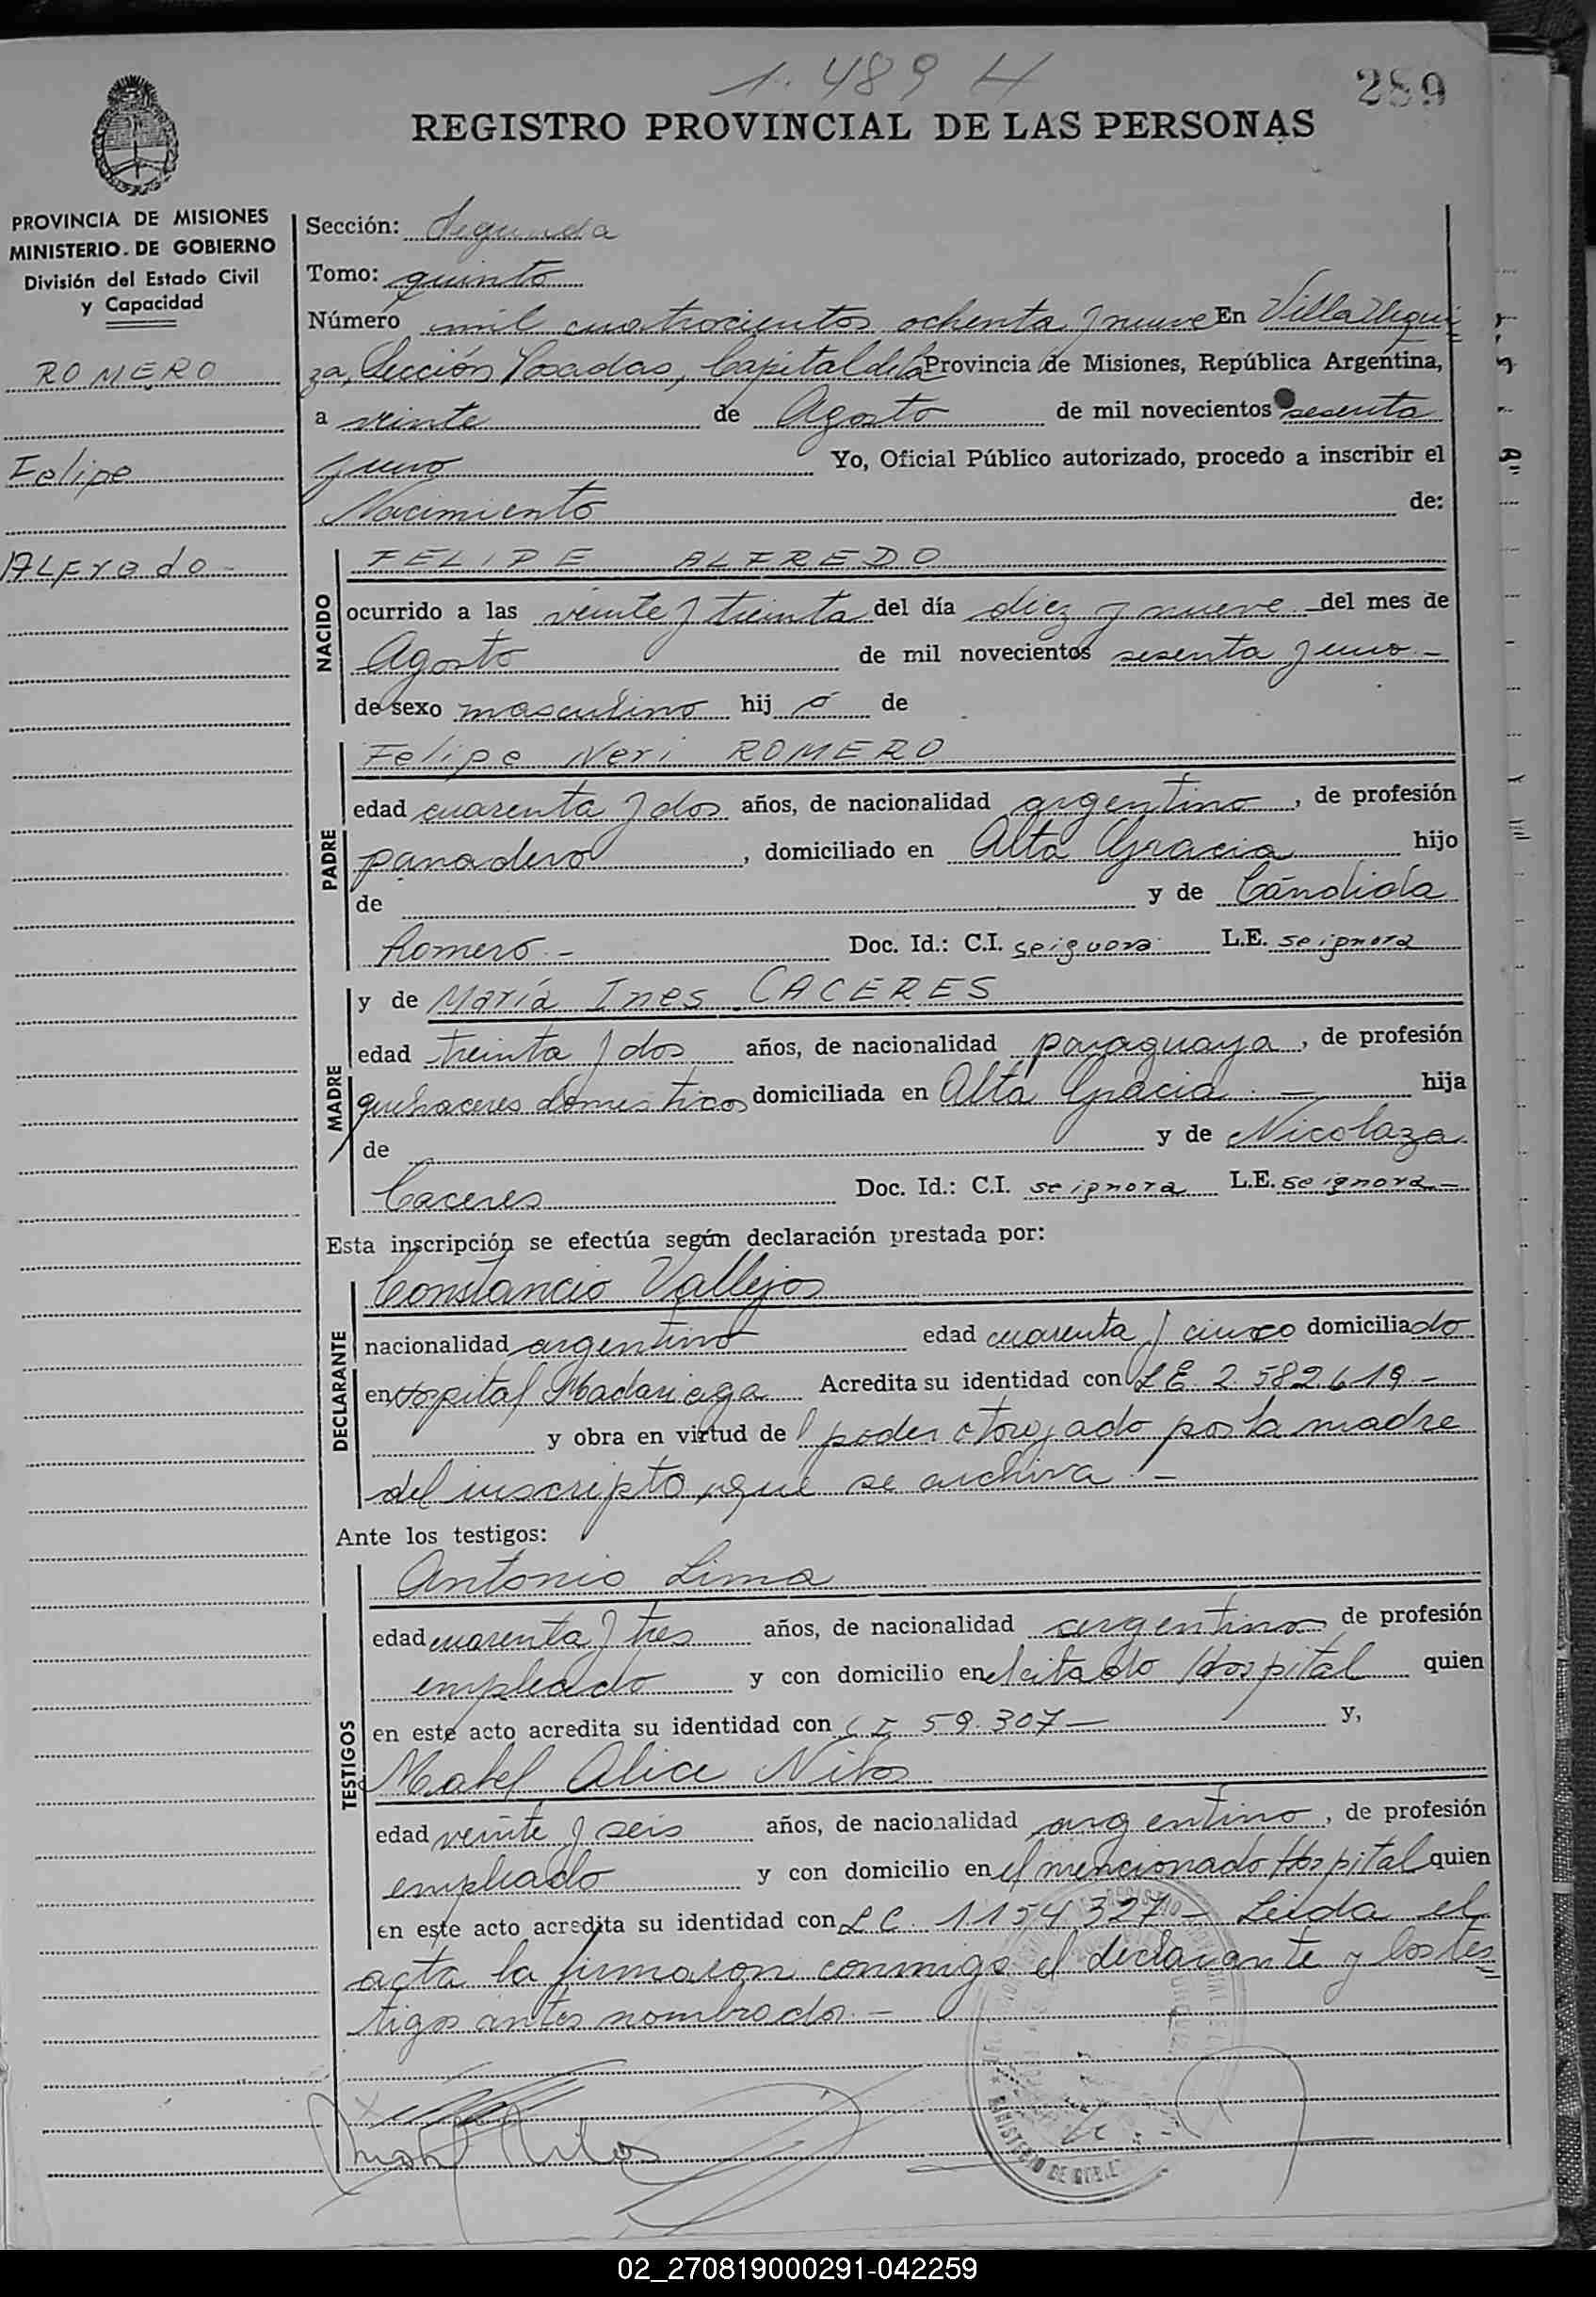 1.489 H
289
REGISTRO PROVINCIAL DE LAS PERSONAS
PROVINCIA DE MISIONES
MINISTERIO. DE GOBIERNO
División del Estado Civil
y Capacidad
ROMERO
Felipe
ALFredo
Sección: Segunda
Tomo: quinto
Número mil cuatrocientos ochenta y nueve En Villa Urqui
za, Sección Posadas, Capital de la Provincia de Misiones, República Argentina,
a veinte de Agosto de mil novecientos sesenta
y uno Yo, Oficial Público autorizado, procedo a inscribir el
Nacimiento de:
NACIDO
FELIPE ALFREDO
ocurrido a las veinte y treinta del día diez y nueve del mes de
Agosto de mil novecientos sesenta y uno -
de sexo masculino hij o de
PADRE
Felipe Neri ROMERO
edad cuarenta y dos años, de nacionalidad argentino, de profesión
panadero, domiciliado en Alta Gracia hijo
de y de Cándida
Romero.- Doc. Id.: C.I. se ignora L.E. se ignora
MADRE
y de María Ines CACERES
edad treinta y dos años, de nacionalidad paraguaya, de profesión
quehaceres domesticos domiciliada en Alta Gracia.- hija
de y de Nicolaza
Caceres Doc. Id.: C.I. se ignora L.E. se ignora -
Esta inscripción se efectúa según declaración prestada por:
DECLARANTE
Constancio Vallejos
nacionalidad argentino edad cuarenta y cinco domiciliado
en Hospital Madariaga Acredita su identidad con L E. 2.582.619.-
y obra en virtud de poder otorgado por la madre
del inscripto, que se archiva.-
Ante los testigos:
TESTIGOS
Antonio Lima
edad cuarenta y tres años, de nacionalidad argentino de profesión
empleado y con domicilio en el citado Hospital quien
en este acto acredita su identidad con C I 59.307 - y,
Mabel Alice Nilos
edad veinte y seis años, de nacionalidad argentino, de profesión
empleado y con domicilio en el mencionado Hospital quien
en este acto acredita su identidad con L C. 1154327 - Leida el
acta la firmaron conmigo el declarante y los tes
tigos antes nombrados.-
MINISTERIO DE GOBIE
02_270819000291-042259